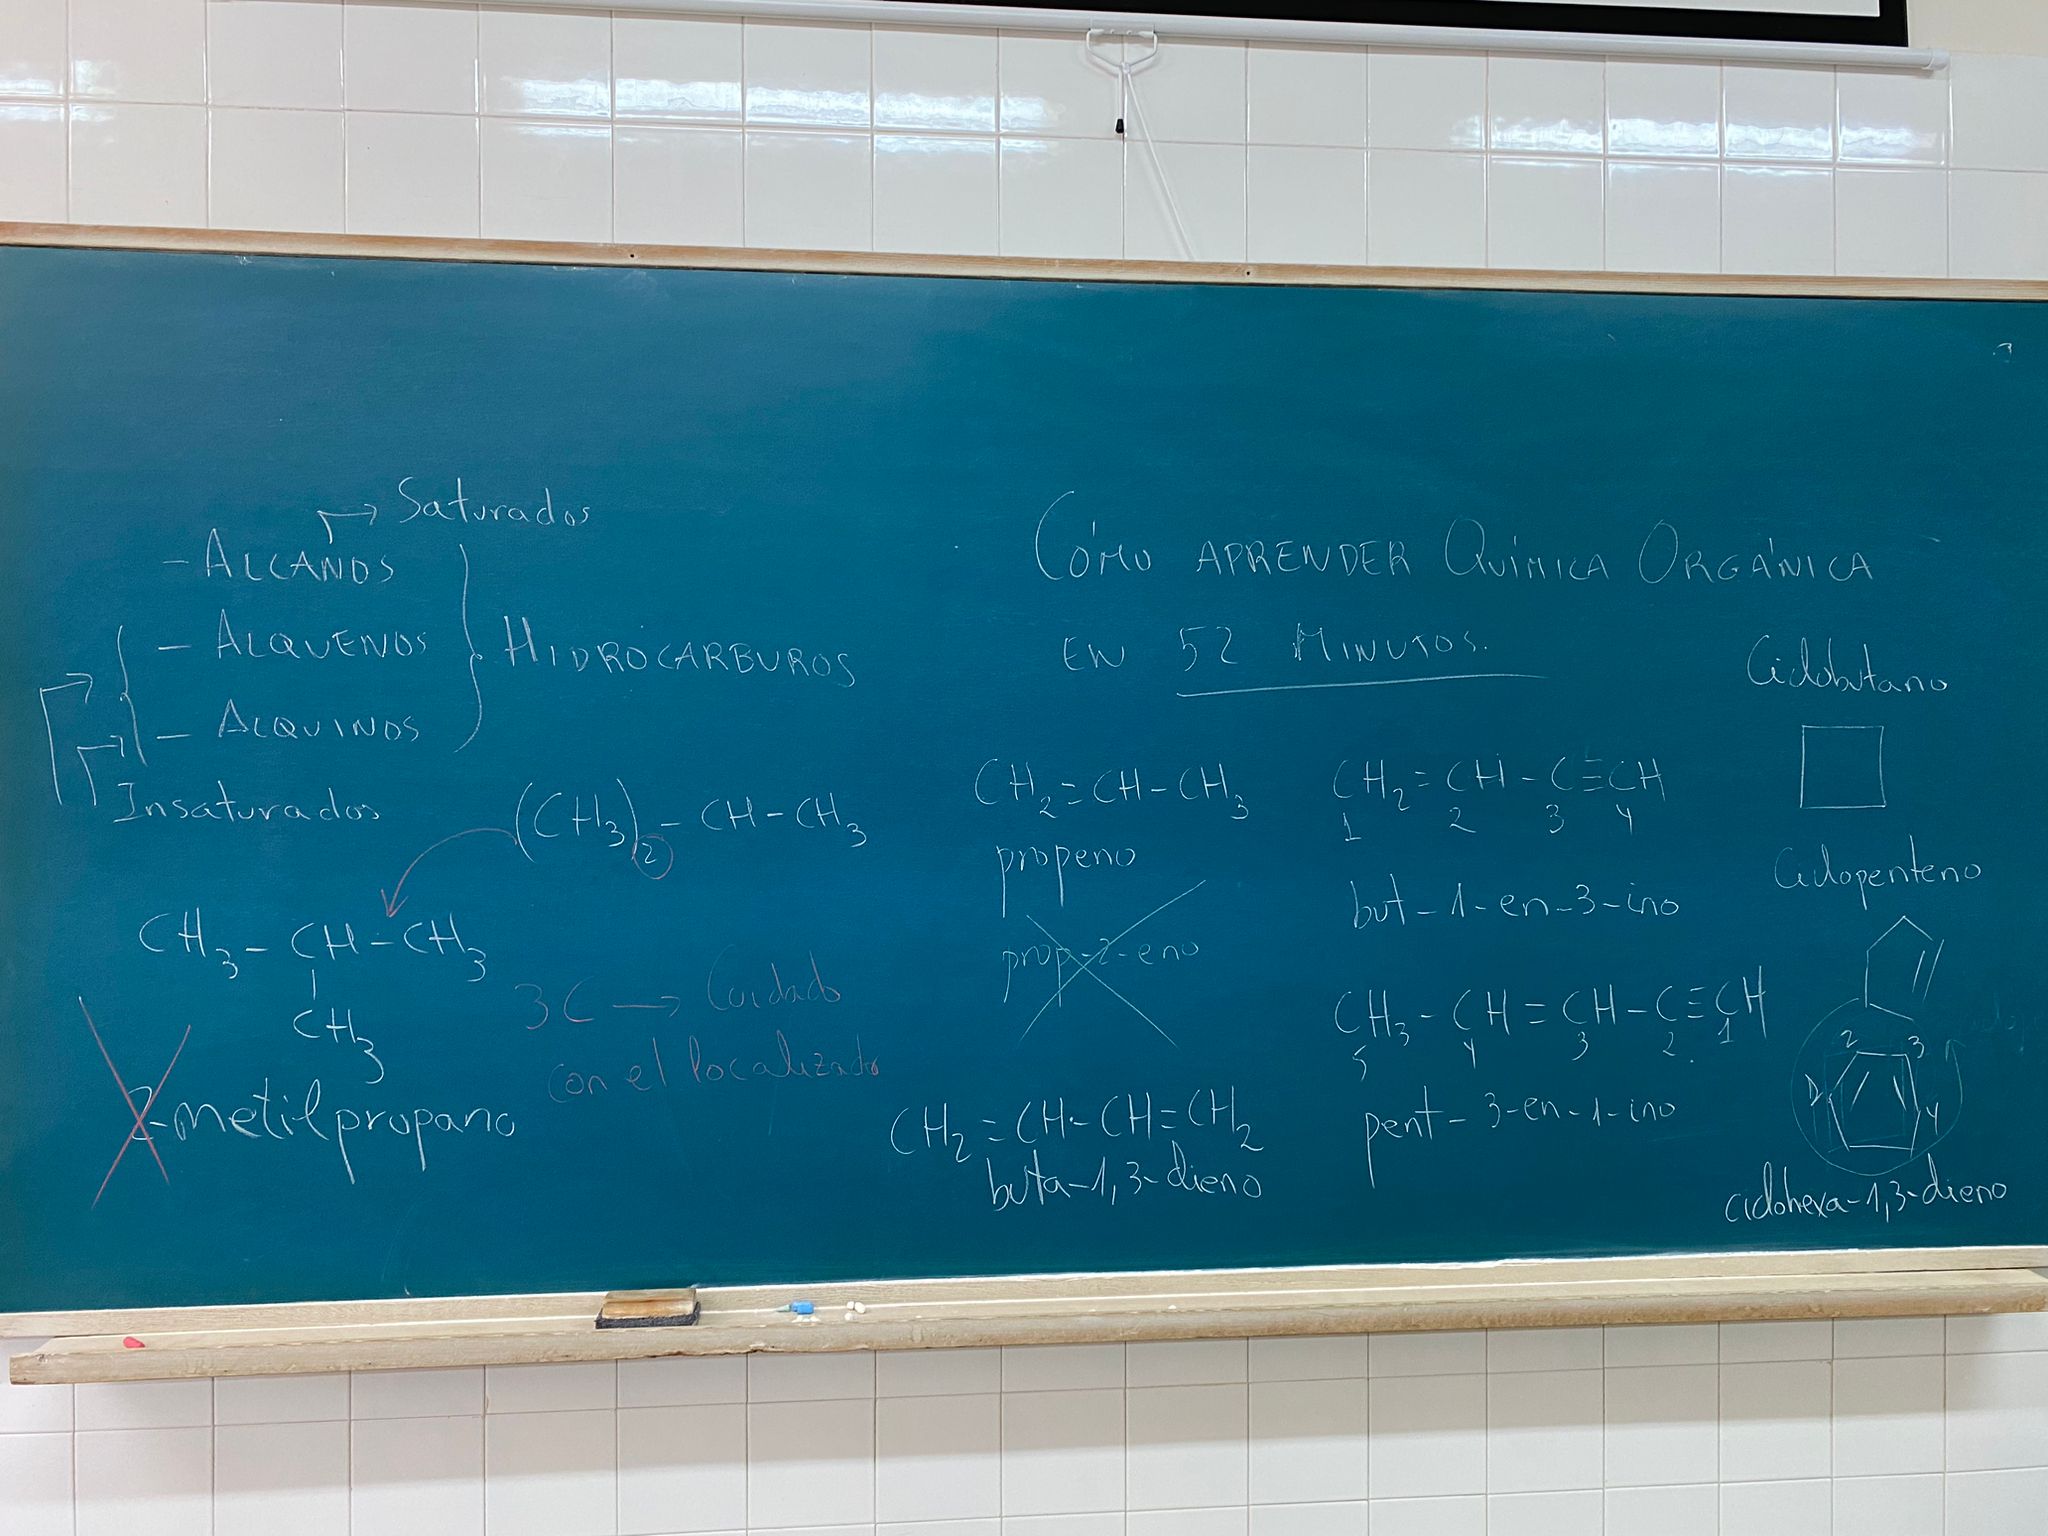 Saturados
- ALCANOS
- ALQUENOS
- ALQUINOS
HIDROCARBUROS
Insaturados
(CH3)2 - CH - CH3
CH3 - CH - CH3
CH3
2-metilpropano
3C → Cuidado
con el localizador
CÓMO APRENDER QUÍMICA ORGÁNICA
EN 52 MINUTOS.
CH2 = CH - CH3
propeno
prop-2-eno
CH2 = CH - CH = CH2
buta-1,3-dieno
CH2 = CH - C ≡ CH
1 2 3 4
but-1-en-3-ino
CH3 - CH = CH - C ≡ CH
5 4 3 2 1
pent-3-en-1-ino
Ciclobutano
Ciclopenteno
2 3
1 4
ciclohexa-1,3-dieno